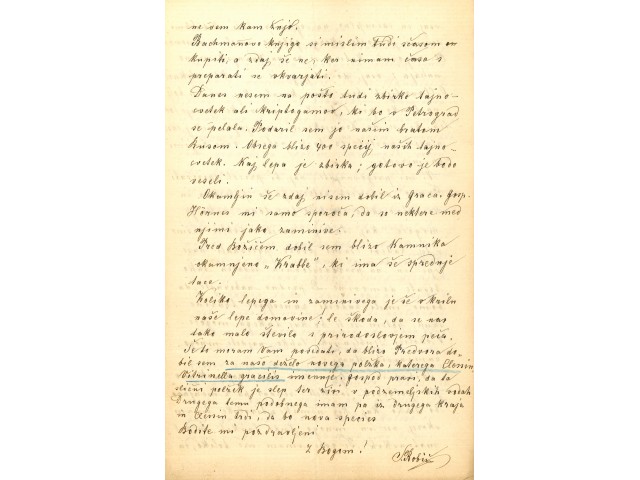 ne vem kam
Bachmanove knjige si mislim tudi sčasom on
kupiti, a zdaj še ne, ker nimam časa s
preparati se ukvarjati.
Danes nesem na pošto tudi zbirko tajno-
cvetek ali kriptogamov, ki bo v Petrograd
se peljala. Podaril sem jo našim bratom
Rusom. Obsega blizo 400 specij naših tajno-
cvetek. Kaj lepa je zbirka; gotovo je bodo
veseli.
Okamnin še zdaj nisem dobil iz Graca. Gosp.
Hörnes mi samo sporoča, da so nektere med
njimi jako zanimive.
Pred Božičem dobil sem blizo Kamnika
okamnjeno „Krabbe", ki ima še sprednje
tace.
Koliko lepega in zanimivega je še v krilu
naše lepe domovine! le škoda, da se nas
tako malo število s prirodoslovjem peča.
Še to moram Vam povedati, da blizo Predvora do-
bil sem za našo deželo novega polžka, katerega Clessin
Vitrinella gracilis imenuje. Gospod pravi, da ta
mični polžek je slep ter živi v podzemeljskih vodah
Drugega temu podobnega imam pa iz drugega kraja
in Clessin trdi, da bo nova species
Bodite mi pozdravljeni
Z Bogom!
S. Robič